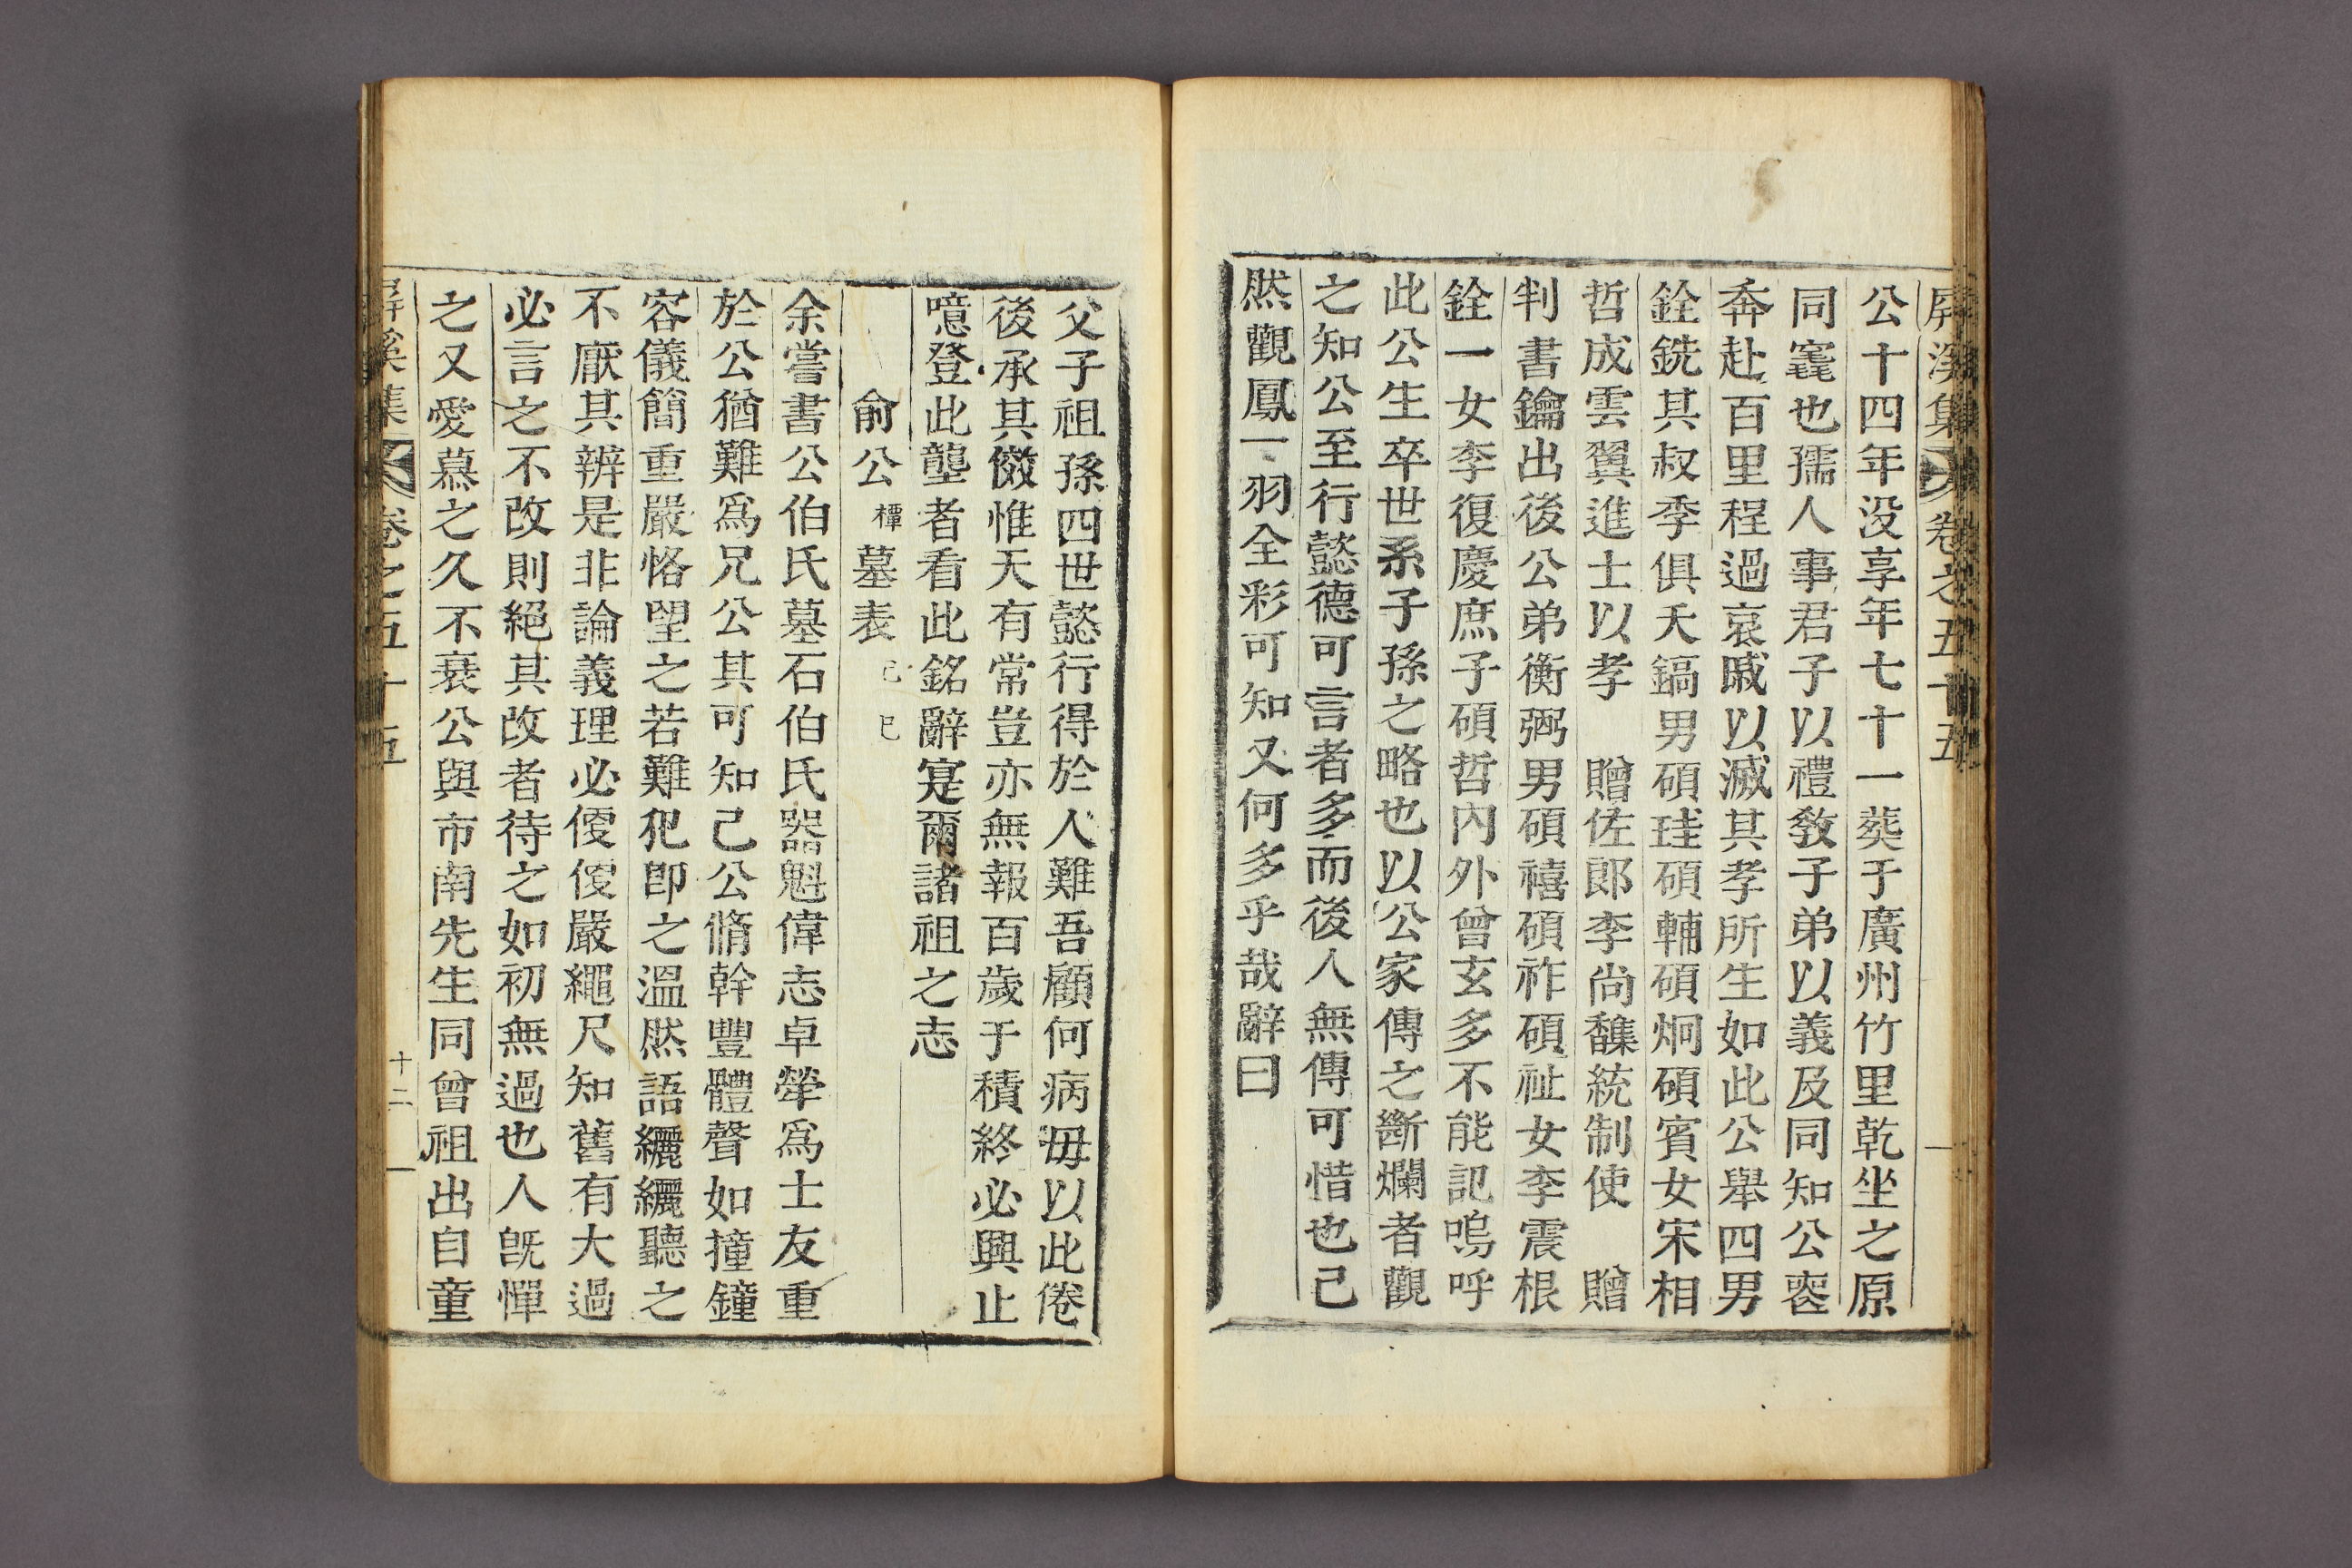 屛溪集 卷之五十五
公十四年没享年七十一葬于廣州竹里乾坐之原
同窆也孺人事君子以禮敎子弟以義及同知公喪
奔赴百里程過哀戚以滅其孝所生如此公舉四男
銓銑其叔季俱夭鎬男碩珪碩輔碩炯碩賓女宋相
哲成雲翼進士以孝 贈佐郎李尙馦統制使 贈
判書鑰出後公弟衡弼男碩禧碩祚碩祉女李震根
銓一女李復慶庶子碩哲內外曾玄多不能記嗚呼
此公生卒世系子孫之略也以公家傳之斷爛者觀
之知公至行懿德可言者多而後人無傳可惜也已
然觀鳳一羽全彩可知又何多乎哉辭曰
父子祖孫四世懿行得於人難吾顧何病毋以此倦
後承其儆惟天有常豈亦無報百歲于積終必興止
噫登此壟者看此銘辭寔爾諸祖之志
俞公 㮤 墓表 己巳
余嘗書公伯氏墓石伯氏器魁偉志卓犖爲士友重
於公猶難爲兄公其可知已公脩幹豐體聲如撞鐘
容儀簡重嚴恪望之若難犯卽之溫然語纚纚聽之
不厭其辨是非論義理必傻傻嚴繩尺知舊有大過
必言之不改則絕其改者待之如初無過也人旣憚
之又愛慕之久不衰公與市南先生同曾祖出自童
屛溪集 卷之五十五 十二